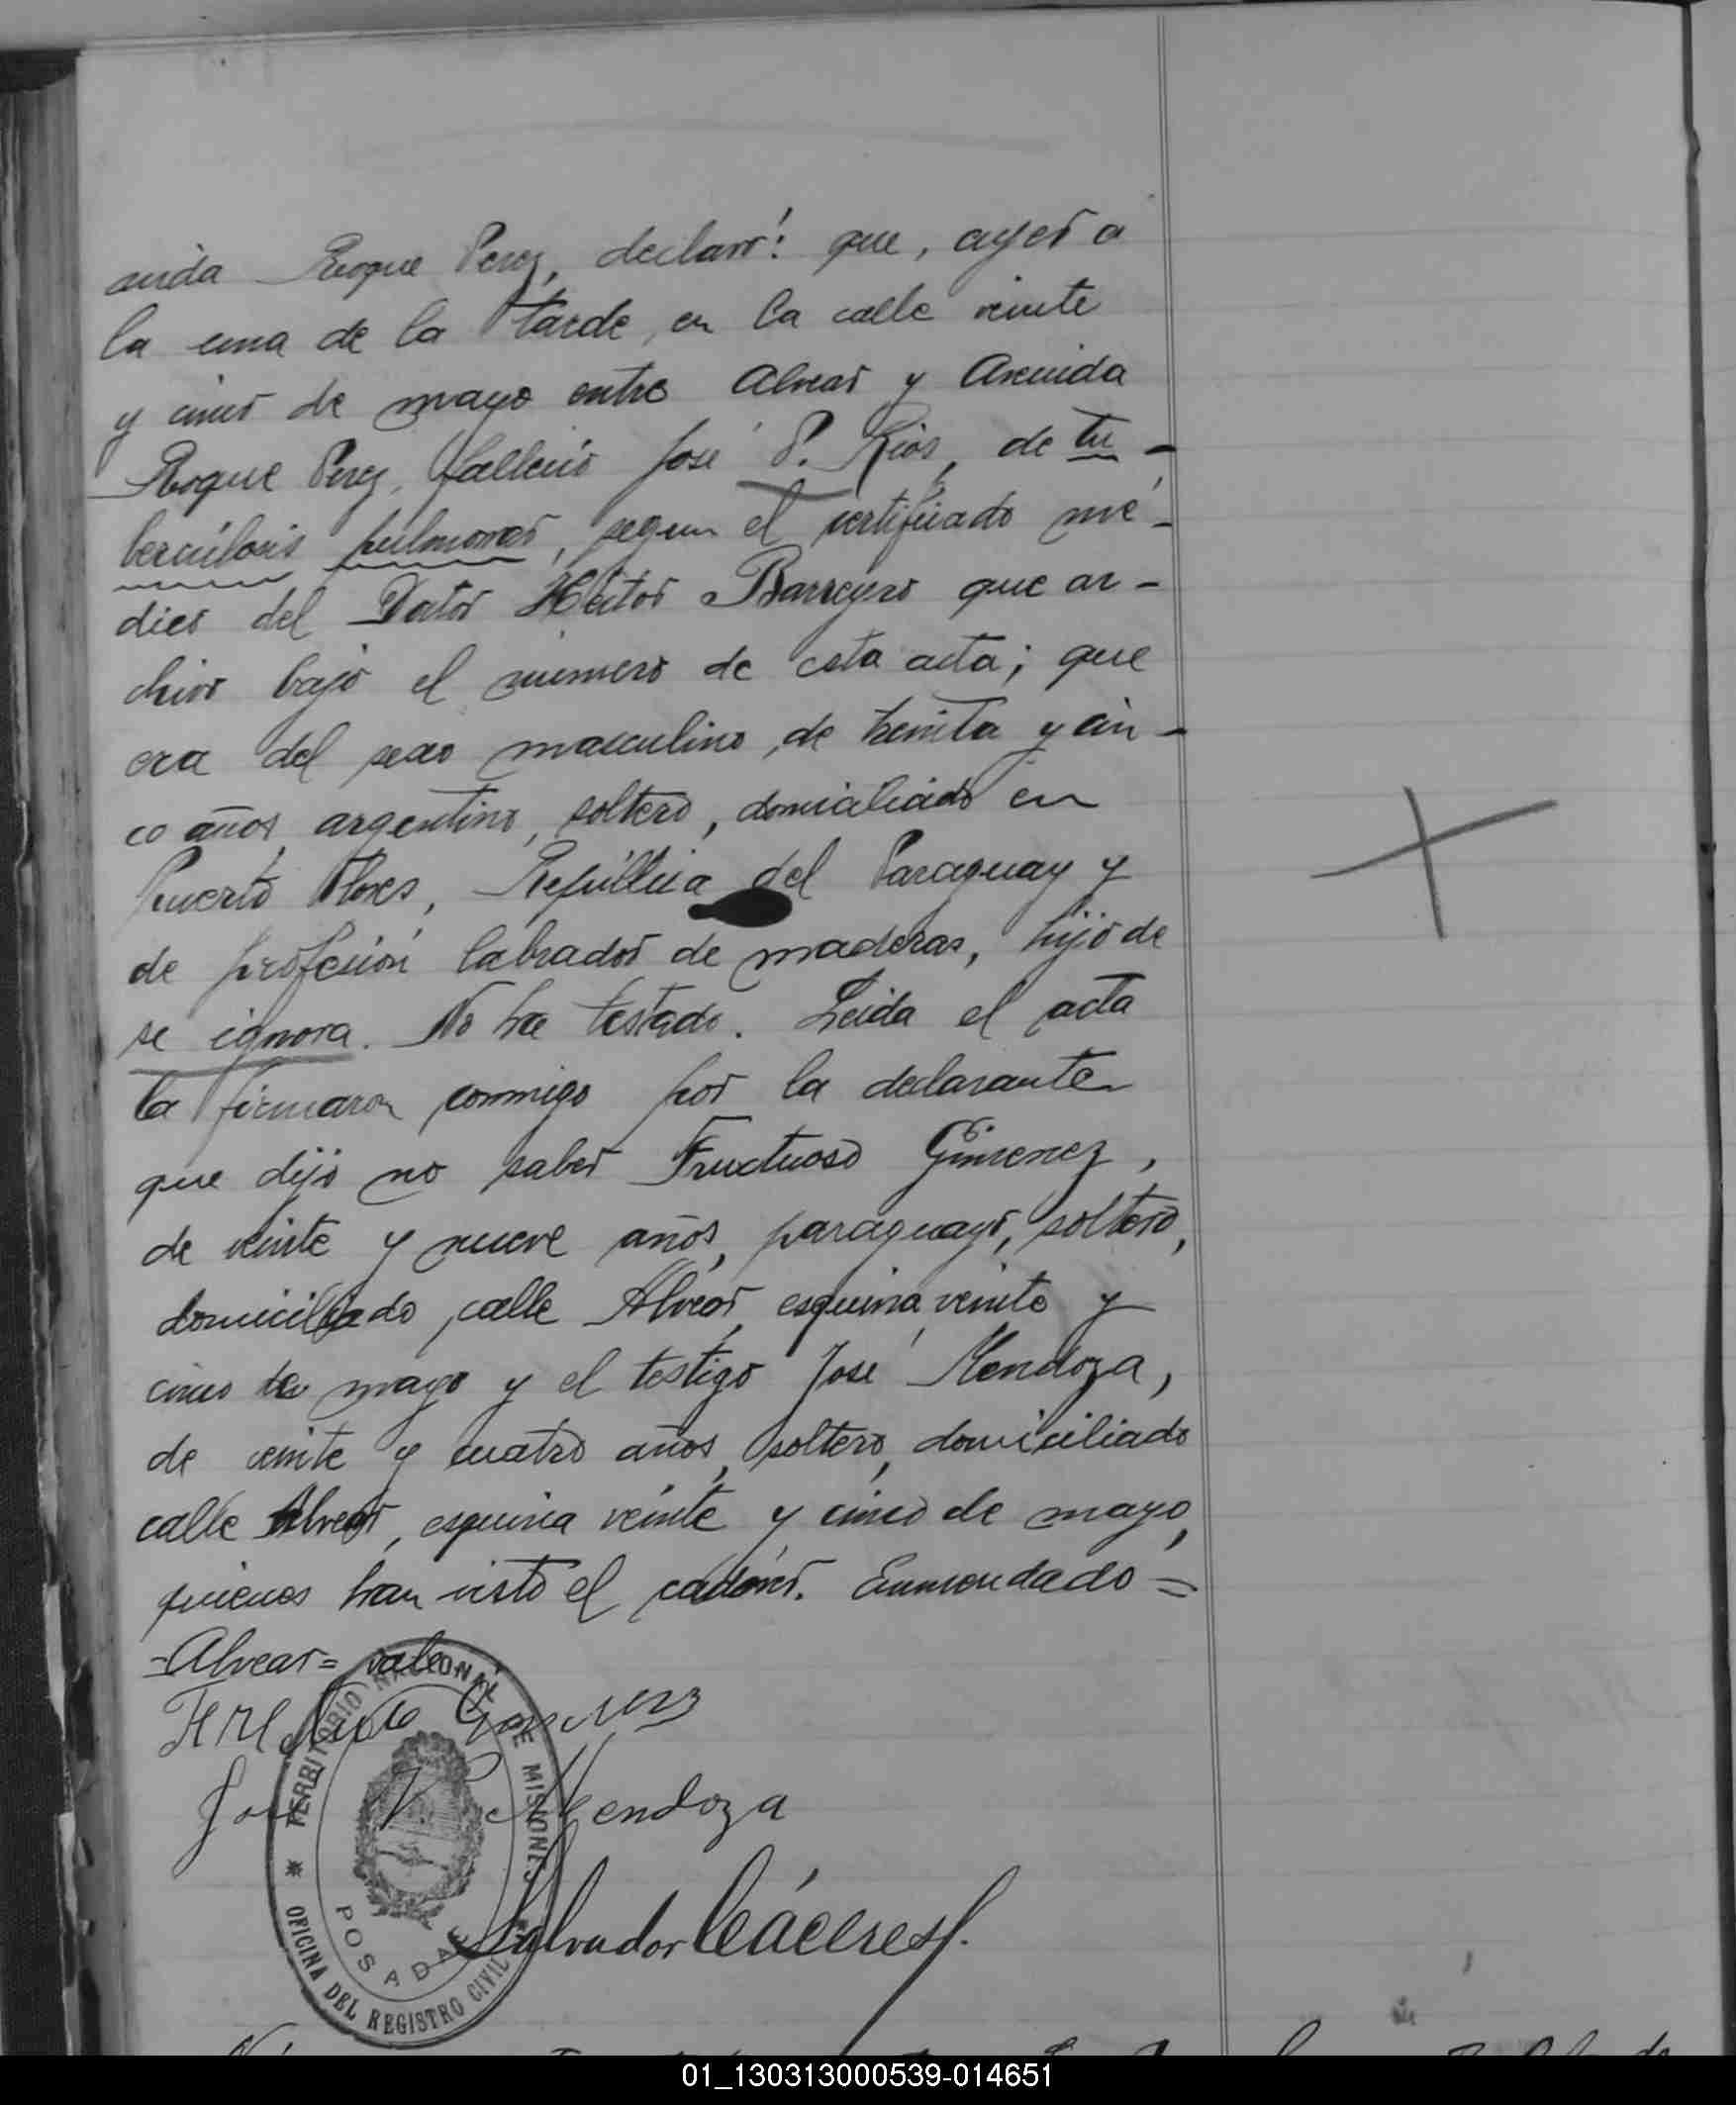 nida Roque Perez, declaró: que, ayer a
la una de la tarde, en la calle veinte
y cinco de mayo entre Alvear y Avenida
Roque Perez, falleció José P. Rios, de tu-
berculosis pulmonar, segun el certificado mé-
dico del Doctor Héctor Barreyro que ar-
chivo bajo el número de esta acta; que
era del sexo masculino, de treinta y cin-
co años, argentino, soltero, domiciliado en
Puerto Flores, República del Paraguay y
de profesión labrador de maderas, hijo de
se ignora. No ha testado. Leida el acta
la firmaron conmigo por la declarante
que dijo no saber Fructuoso Gimenez,
de veinte y nueve años, paraguayo, soltero,
domiciliado calle Alvear, esquina veinte y
cinco de mayo y el testigo José Mendoza,
de veinte y cuatro años, soltero, domiciliado
calle Alvear, esquina veinte y cinco de mayo,
quienes han visto el cadáver. Enmendado=
-Alvear= vale
José V. Mendoza
Salvador Cáceres
TERRITORIO NACIONAL DE MISIONES
POSADAS
OFICINA DEL REGISTRO CIVIL
01_130313000539-014651